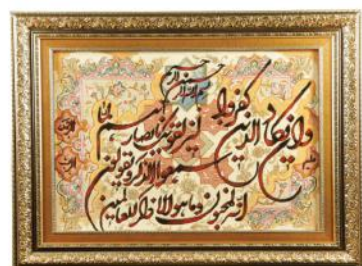 بسم الله الرحمن الرحیم
وان یکاد الذین کفروا
لیزلقونک بابصارهم لما
سمعوا الذکر و یقولون
انه لمجنون و ما هو الا ذکر للعالمین